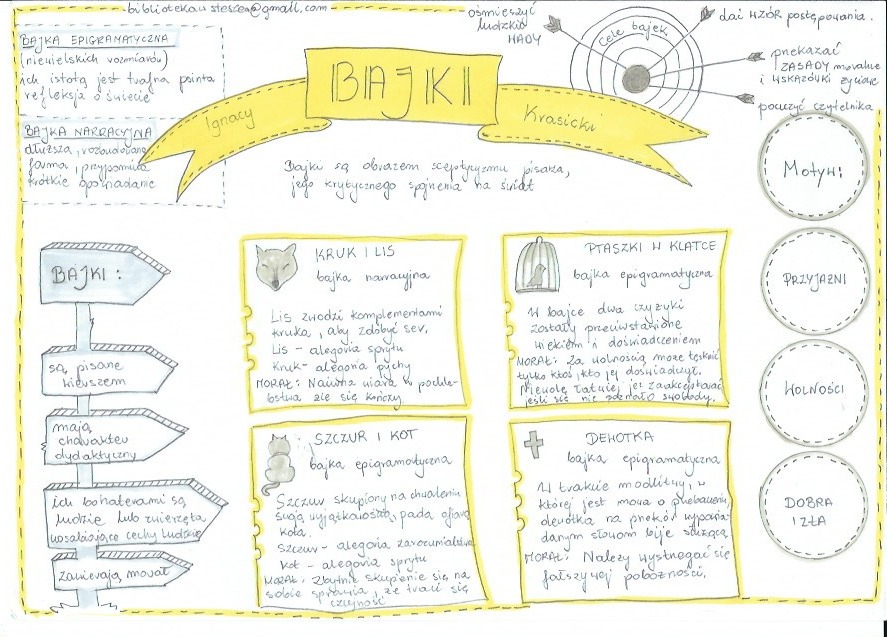 bibliotekaustesza@gmail.com
BAJKA EPIGRAMATYCZNA
(niewielkich rozmiarów)
ich istotą jest trafna pointa
refleksja o świecie
BAJKA NARRACYJNA
dłuższa, rozbudowana
forma, przypomina
krótkie opowiadanie
BAJKI
Ignacy
Krasicki
ośmieszyć
ludzkie
WADY
Cele bajek
dać WZÓR postępowania.
przekazać
ZASADY moralne
i WSKAZÓWKI życiowe
pouczyć czytelnika
Bajki są obrazem sceptycyzmu pisarza,
jego krytycznego spojrzenia na świat
BAJKI:
są pisane
wierszem
mają
charakter
dydaktyczny
ich bohaterami są
ludzie lub zwierzęta
uosabiające cechy ludzkie
zawierają morał
KRUK I LIS
bajka narracyjna
Lis zwodzi komplementami
kruka, aby zdobyć ser.
Lis - alegoria sprytu
Kruk - alegoria pychy
MORAŁ: Naiwna wiara w pochle-
bstwa źle się kończy.
PTASZKI W KLATCE
bajka epigramatyczna
W bajce dwa czyżyki
zostały przeciwstawione
wiekiem i doświadczeniem
MORAŁ: Za wolnością może tęsknić
tylko ktoś, kto jej doświadczył.
Niewolę łatwiej jest zaakceptować
jeśli się nie poznało swobody.
SZCZUR I KOT
bajka epigramatyczna
Szczur skupiony na chwaleniu
swojej wyjątkowości, pada ofiarą
kota.
Szczur - alegoria zarozumialstwa
Kot - alegoria sprytu
MORAŁ: Zbytnie skupienie się na
sobie sprawia, że traci się
czujność
DEWOTKA
bajka epigramatyczna
W trakcie modlitwy, w
której jest mowa o przebaczeniu
dewotka na przekór wypowia-
danym słowom bije służącą
MORAŁ: Należy wystrzegać się
fałszywej pobożności.
Motyw:
PRZYJAŹNI
WOLNOŚCI
DOBRA
I ZŁA